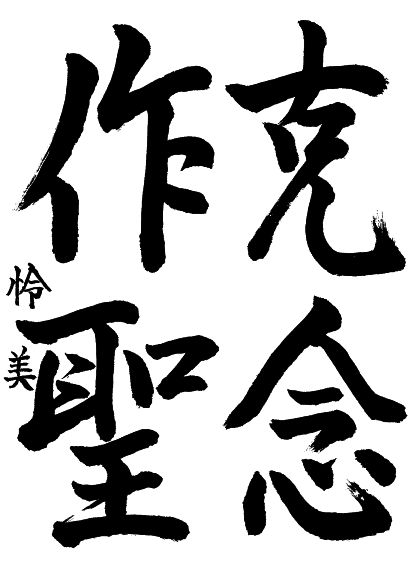 克念
作聖
怜美